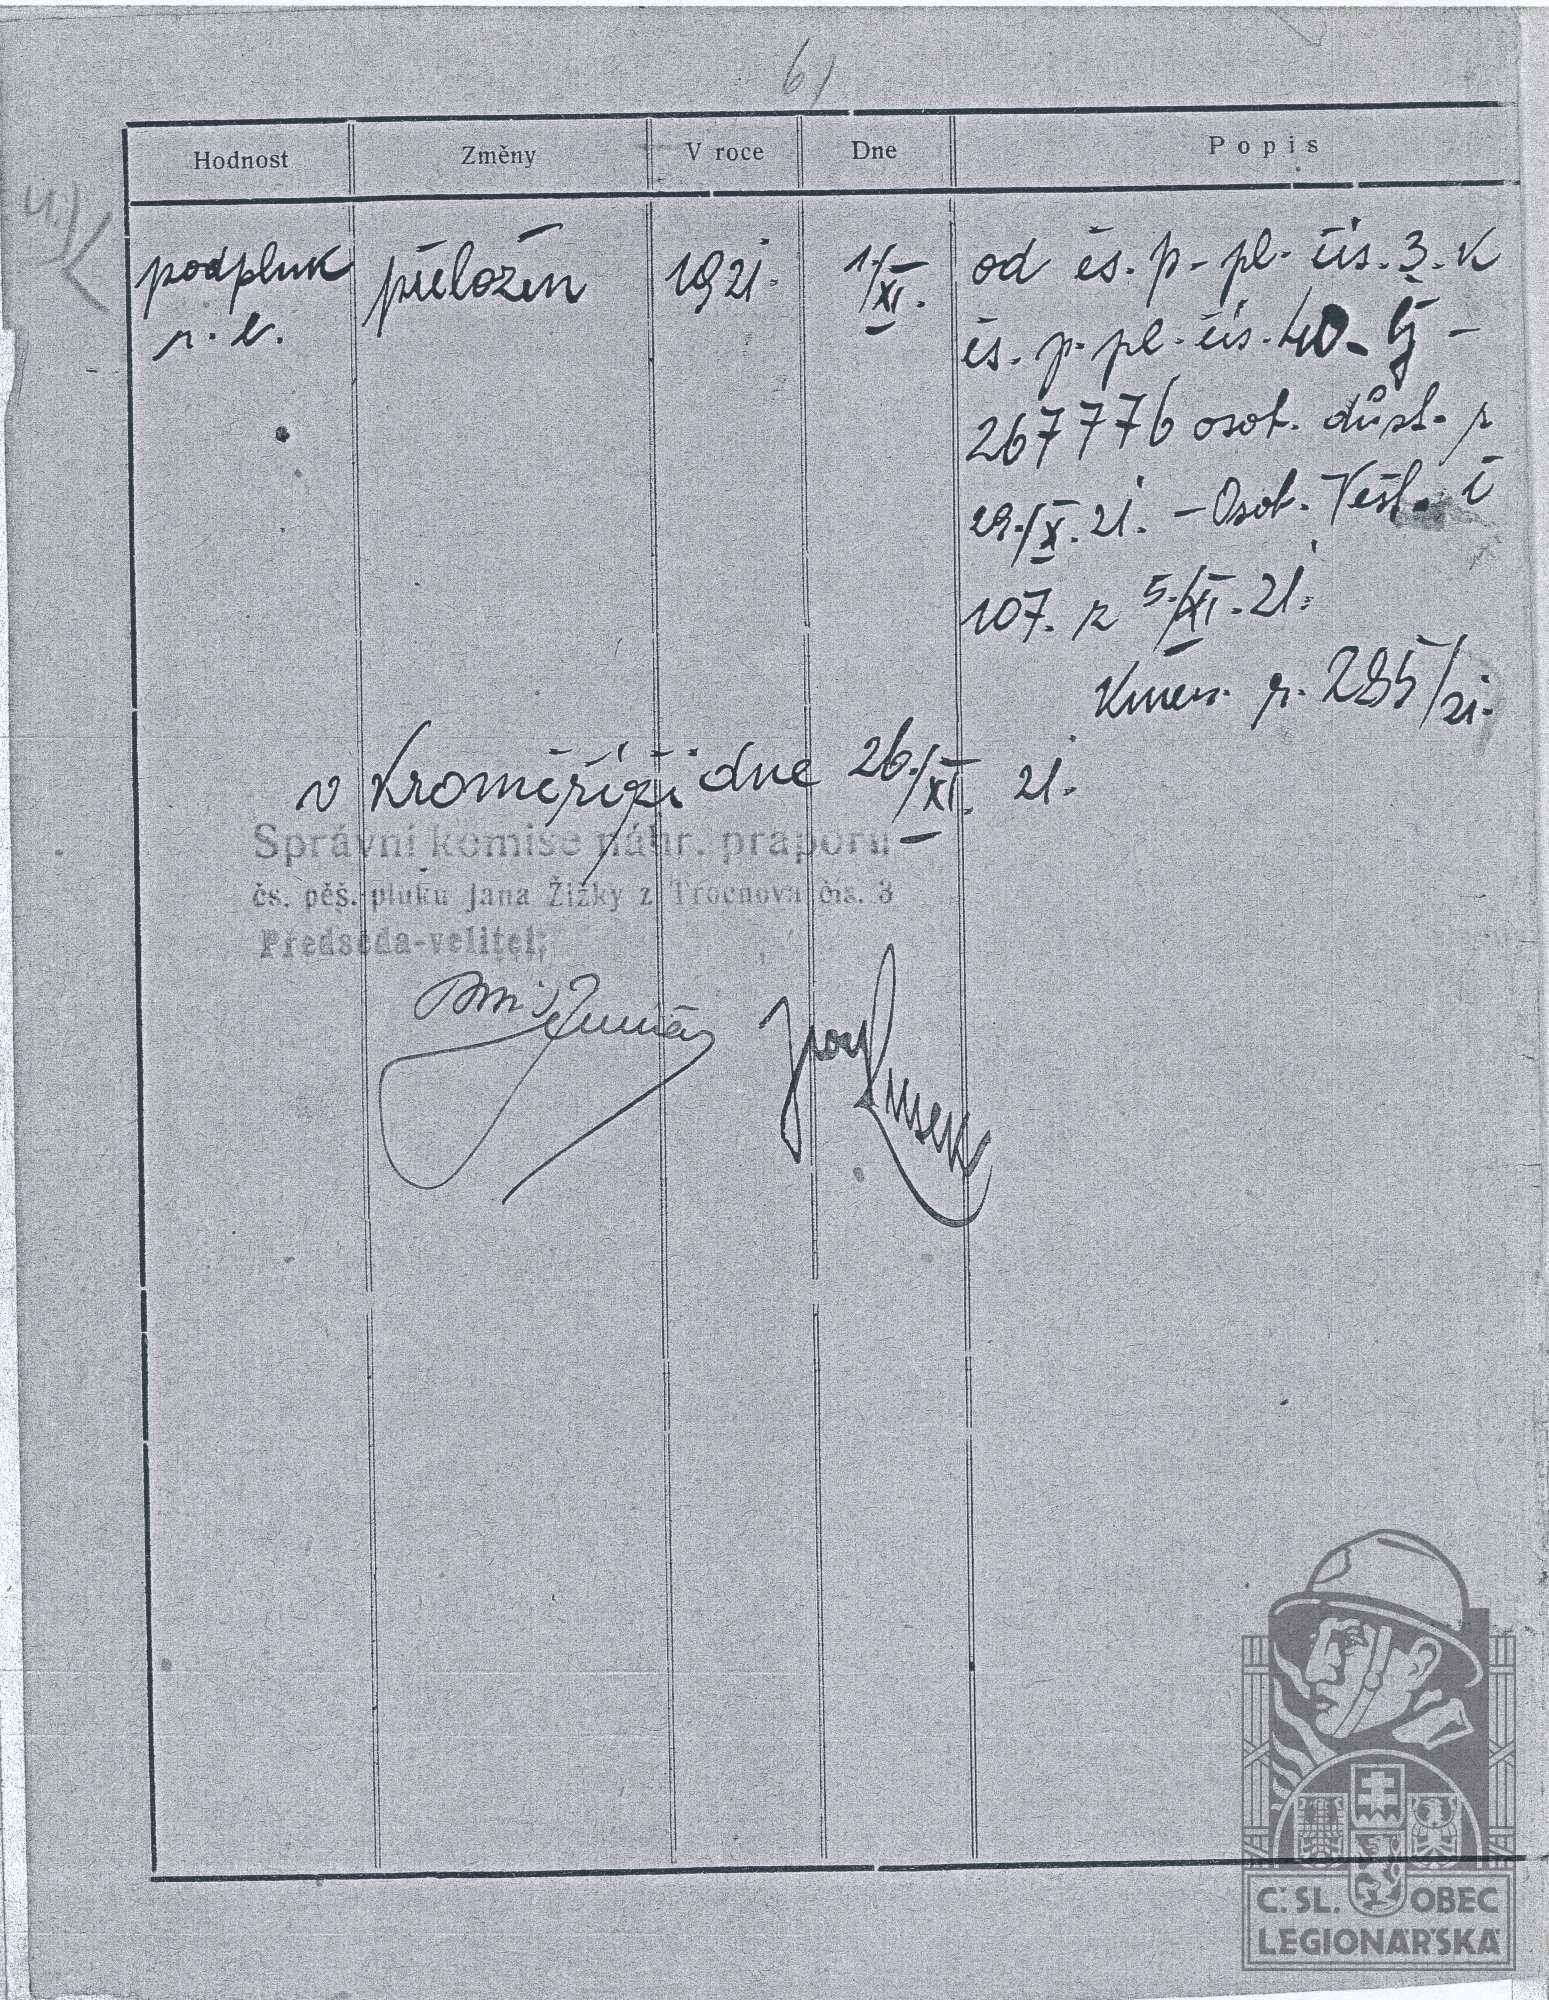 6)
Hodnost Změny V roce Dne Popis
podpluk přeložen 1921. 1./XI. od čs. p. pl. čís. 3. k
r. l. čs. p. pl. čís. 40. Čj -
267776 osob. důst. z
29./X. 21. - Osob. Věst. č
107. z 5./XI. 21.
Kmen. r. 285/21.
v Kroměříži dne 26./XI. 21.
Správní komise náhr. praporu
čs. pěš. pluku Jana Žižky z Trocnova čís. 3
Předseda-velitel:
Č. SL. OBEC
LEGIONÁŘSKÁ